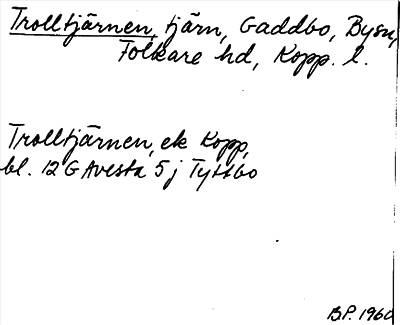 Trolltjärnen, tjärn, Gaddbo, By sn,
Folkare hd, Kopp. l.
Trolltjärnen, ek Kopp,
bl. 12 G Avesta 5 j Tyttbo
B.P. 1960